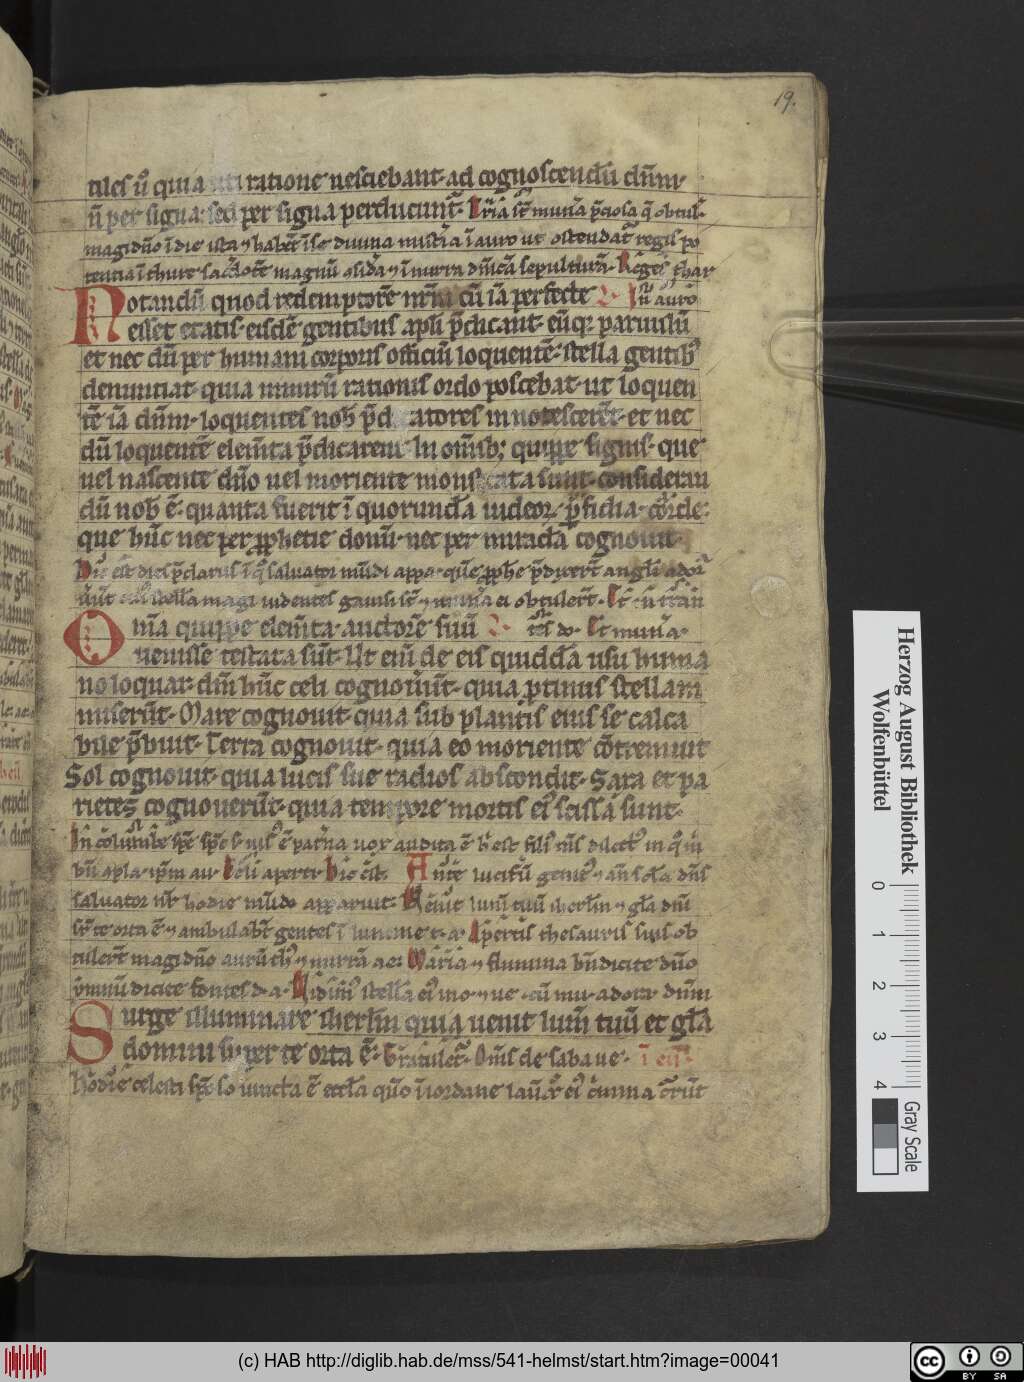 19.
tiles ṽ quia uti ratione nesciebant· ad cognoscendū dñm·
ñ per signa· sed per signa perducunt̃· Tria sť munera p̄ciosa q̄ obtuł·
magi dño ī die ista ⁊ habēt ī se diuina misťia ī auro ut ostendat̃ regis po
tentia ī thure sacdotē magnū ⁊sidera ⁊ ī mirra dñicā sepulturā· Reges thar
Notandū quod redemptorē nrm̄ cū iā perfecte In auro
esset etatis· eisdē gentibus apłi p̄dicant· eūq; paruulū
et nec dū per humani corporis officiū loquentē· stella gentib;
denuntiat· quia nimirū rationis ordo poscebat· ut loquen
tē iā dñm· loquentes nob̄ p̄dicatores innotescerēt· et nec
dū loquentē elem̄ta p̄dicarent In om̄ib; quippe signis· que
uel nascente dño uel moriente monstrata sunt· consideran
dū nob̄ ē· quanta fuerit ī quorundā iudeor̄ p̄fidia· corde·
que hūc nec per pphetie donū· nec per miracla cognouit·
Hic est dies p̄clarus ī q̊ saluator mūdi appa· quē pphe p̄dixert̃ angłi ador̃
stella magi uidentes gauisi sť ⁊ munera ei obtulert̃·
Omīa quippe elem̄ta· auctorē suū Et munera·
uenisse testata sūt· Ut eni de eis quiddā usu huma
no loquar· dm̄ hūc celi cognouert̄· quia ptinus stellam
miserūt· Mare cognouit· quia sub plantis eius se calca
bile p̄buit· Terra cognouit· quia eo moriente cōtremuit
Sol cognouit· quia lucis sue radios abscondit· Saxa et pa
rietes cognouerūt· quia tempore mortis ei' scissa sunt·
In colūbe spē sp̄c uisus ē pat̃na uox audita ē h est fili' m̄s dilect' in q̊ m̄
bn̄ 9pla· ipm̄ au· Celi aperti· Hic est· Ante lucifū genit' ⁊ añ scła dñs
saluator nr̄ hodie mūdo apparuit· Venit lum̄ tuū ihełm ⁊ głа dñi
sr̄ te orta ē ⁊ ambulabt̃ gentes ī lumine t· a· Apertis thesauris suis ob
tulert̃ magi dño aurū th' ⁊ mirrā ae· Maria ⁊ flumina bn̄dicite dño
ymnū dicite fontes d· a· Vidim' stellā ei' ⁊ ue· cū mu· adora· dñm
Surge illuminare iherłm quia uenit lum̄ tuū et głа
domini super te orta ē· Gratulet̃· Om̄s de saba ue· ī eu̅·
Hodie celesti spō iuncta ē eccła quō ī iordane lau ei' c̄mina
Herzog August Bibliothek
Wolfenbüttel
0 1 2 3 4
Gray Scale
(c) HAB http://diglib.hab.de/mss/541-helmst/start.htm?image=00041
cc BY SA